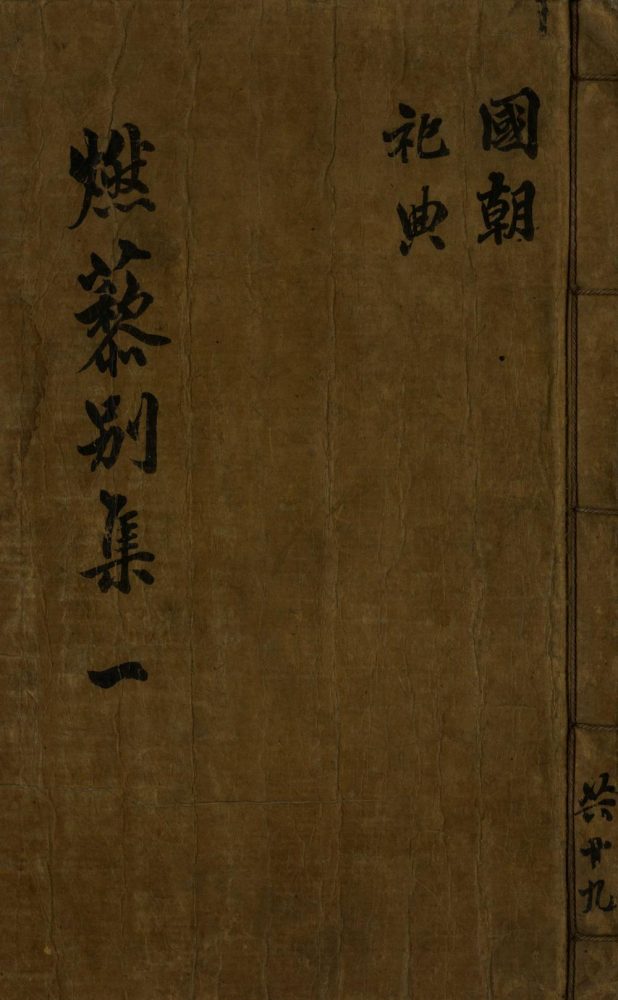 國朝
祀典
燃藜别集 一
共廿九